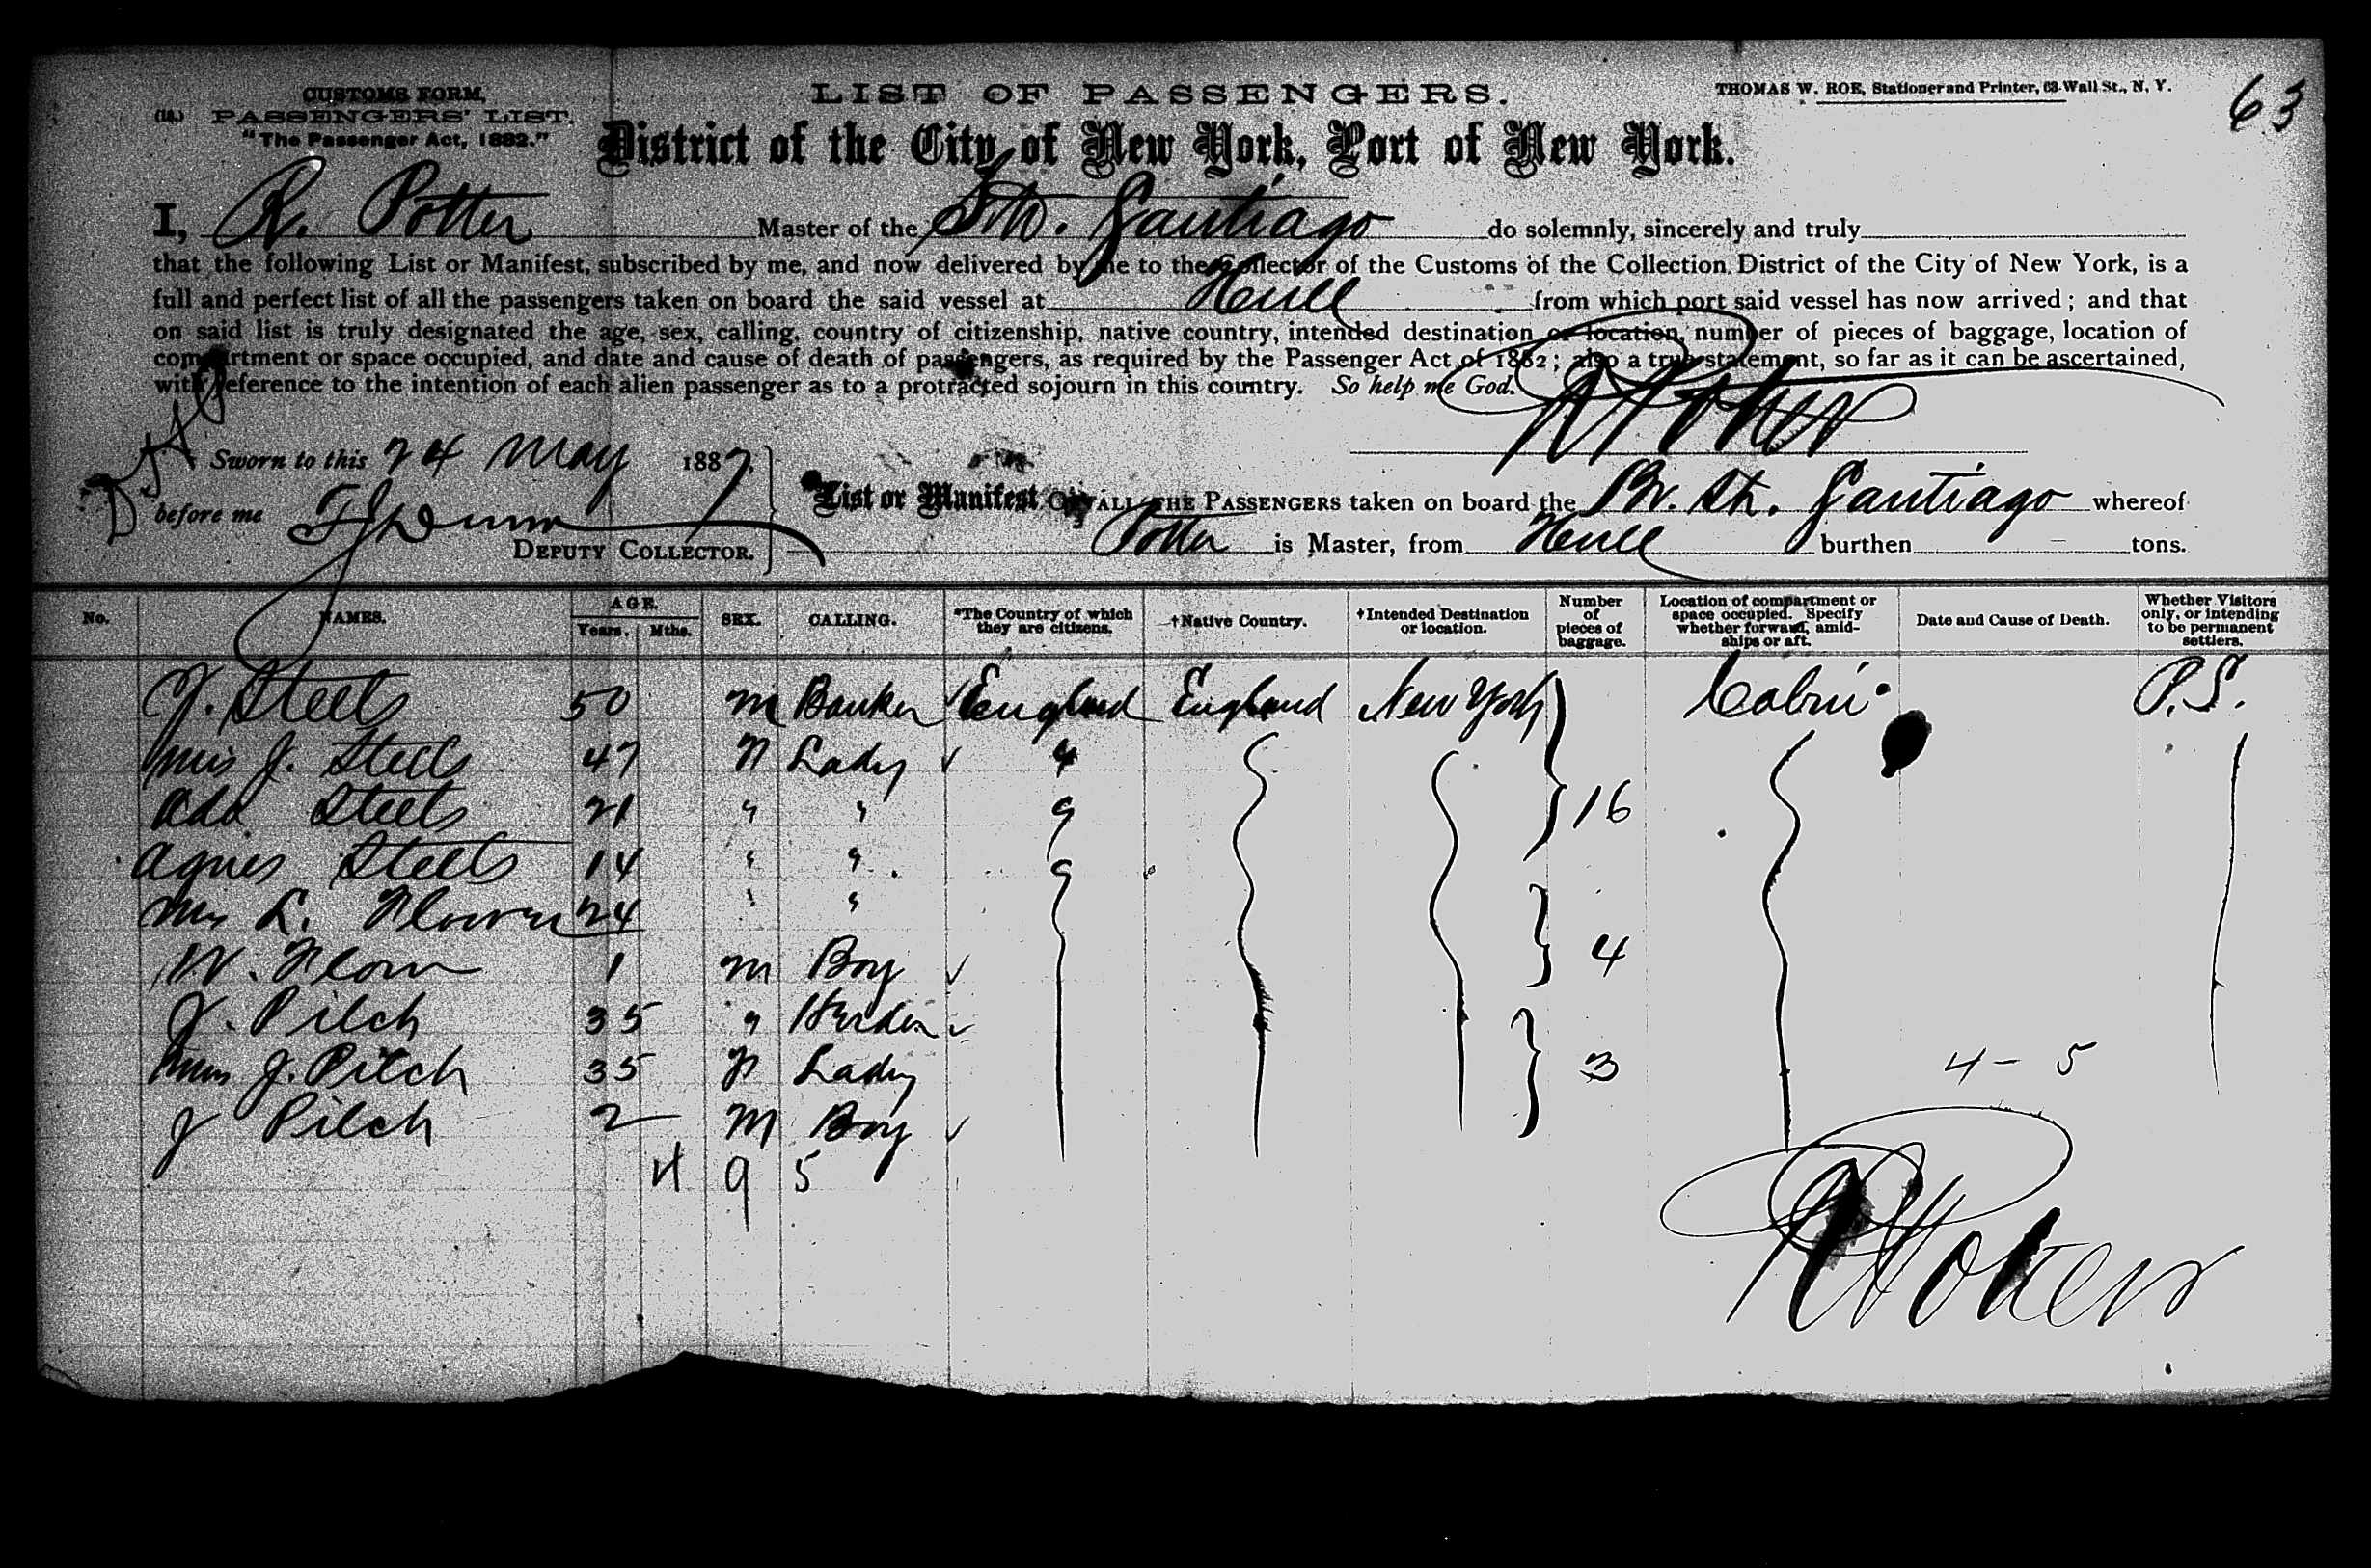 CUSTOMS FORM.
(1a.) PASSENGERS' LIST.
"The Passenger Act, 1882."
LIST OF PASSENGERS.
THOMAS W. ROE, Stationer and Printer, 63 Wall St., N. Y.
63
District of the City of New York, Port of New York.
I, R. Potter Master of the Str. Santiago do solemnly, sincerely and truly
that the following List or Manifest, subscribed by me, and now delivered by me to the Collector of the Customs of the Collection District of the City of New York, is a
full and perfect list of all the passengers taken on board the said vessel at Hull from which port said vessel has now arrived; and that
on said list is truly designated the age, sex, calling, country of citizenship, native country, intended destination or location, number of pieces of baggage, location of
compartment or space occupied, and date and cause of death of passengers, as required by the Passenger Act of 1882; also a true statement, so far as it can be ascertained,
with reference to the intention of each alien passenger as to a protracted sojourn in this country. So help me God.
R Potter
Sworn to this 24 May 1887.
before me
DEPUTY COLLECTOR.
List or Manifest OF ALL THE PASSENGERS taken on board the Br. Str. Santiago whereof
Potter is Master, from Hull burthen tons.
No. NAMES. AGE. Years. Mths. SEX. CALLING. *The Country of which they are citizens. †Native Country. †Intended Destination or location. Number of pieces of baggage. Location of compartment or space occupied. Specify whether forward, amidships or aft. Date and Cause of Death. Whether Visitors only, or intending to be permanent settlers.
J. Steels 50 M Banker England England New York Cabin P.S.
Mrs J. Steels 47 F Lady "
Ada Steels 21 " " " 16
Agnes Steels 14 " " "
Mrs L. 24 " "
W. 1 M Boy 4
J. Pilch 35 "
Mrs J. Pilch 35 F Lady 3 4 - 5
J Pilch 2 M Boy
4 9 5
R Potter